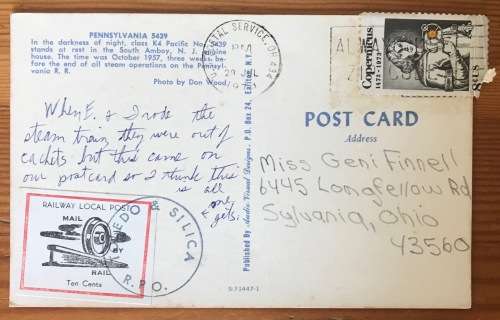 PENNSYLVANIA 5439
In the darkness of night, class K4 Pacific No. 5439
stands at rest in the South Amboy, N. J. engine
house. The time was October 1957, three weeks be-
fore the end of all steam operations on the Pennsyl-
vania R. R.
Photo by Don Wood
When E. & I rode the
steam train, they were out of
cachets but this came on
our postcard so I think this
is all
one
gets.
RAILWAY LOCAL POST
MAIL
BY
RAIL
Ten Cents
& SILICA
R.P.O.
Published By Audio-Visual Designs, P.O. Box 24, Earlton, N.Y.
POSTAL SERVICE, OH 434
PM
29 JUL
Copernicus
1473-1973
8c US
POST CARD
Address
Miss Geni Finnell
6445 Longfellow Rd
Sylvania, Ohio
43560